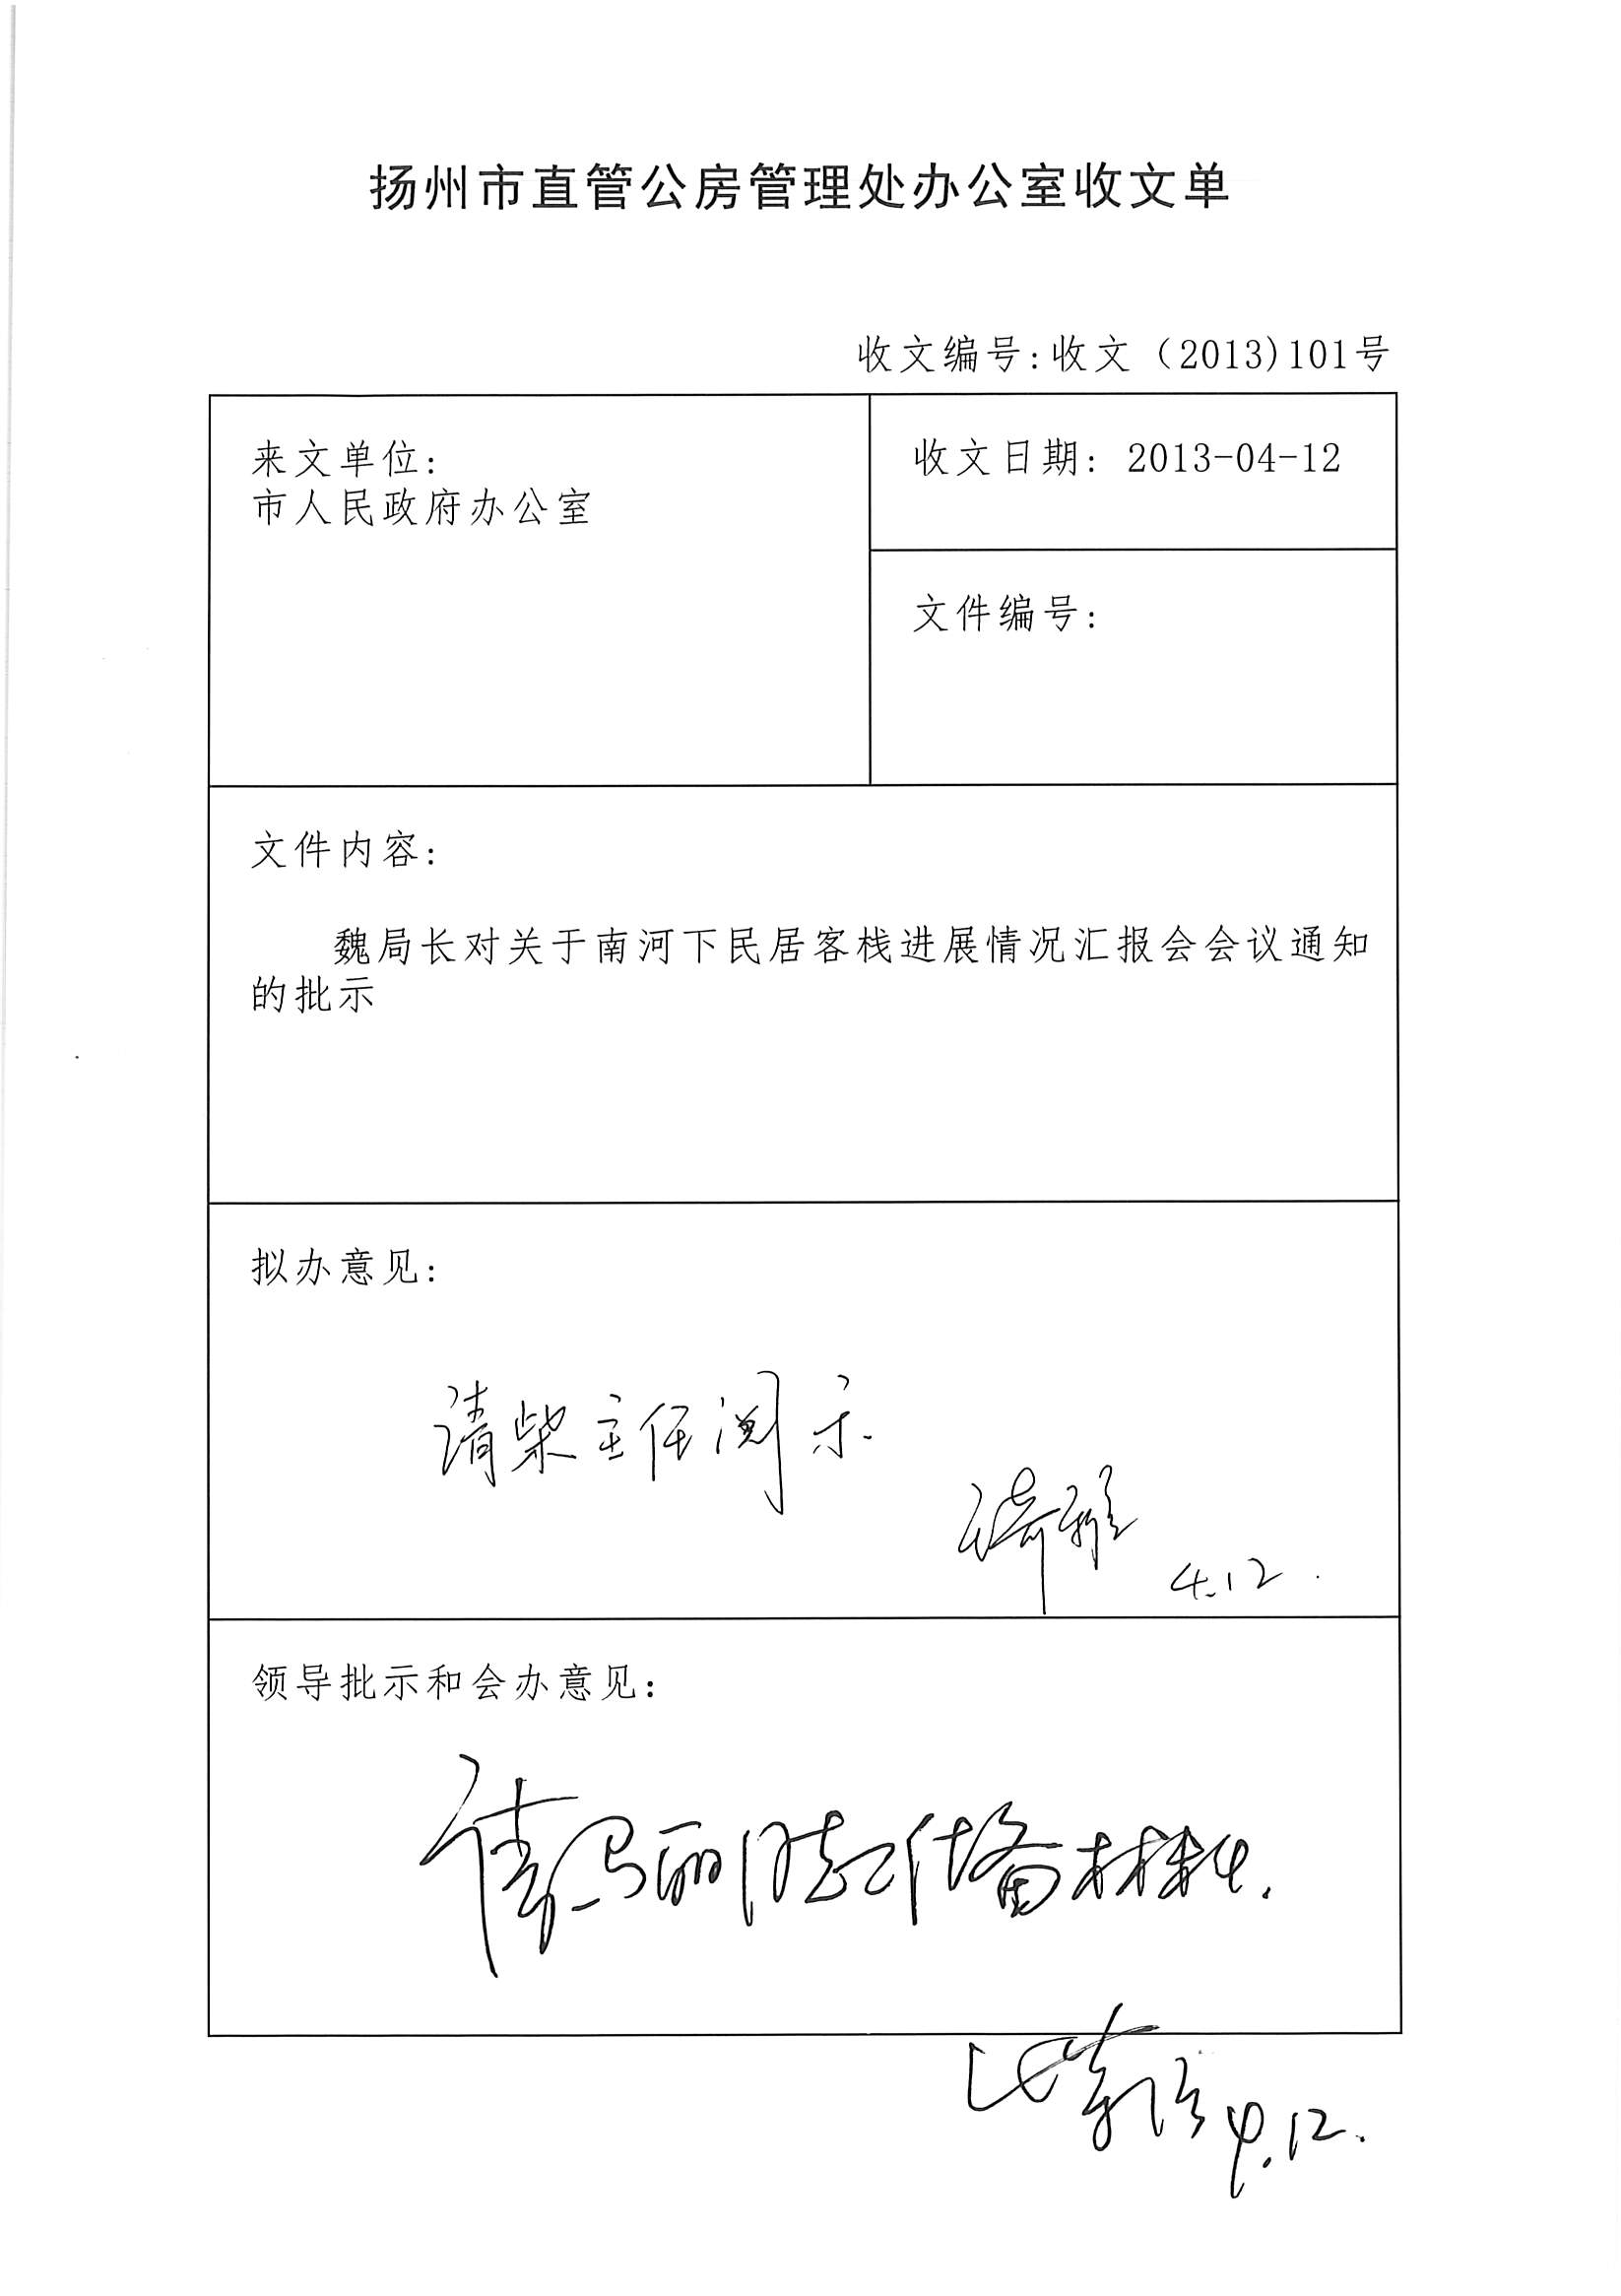 扬州市直管公房管理处办公室收文单
收文编号:收文（2013)101号
来文单位:
市人民政府办公室
收文日期: 2013-04-12
文件编号:
文件内容:
魏局长对关于南河下民居客栈进展情况汇报会会议通知
的批示
拟办意见:
请柴主任阅示.
4.12.
领导批示和会办意见:
请冯丽 准备材料.
4.12.